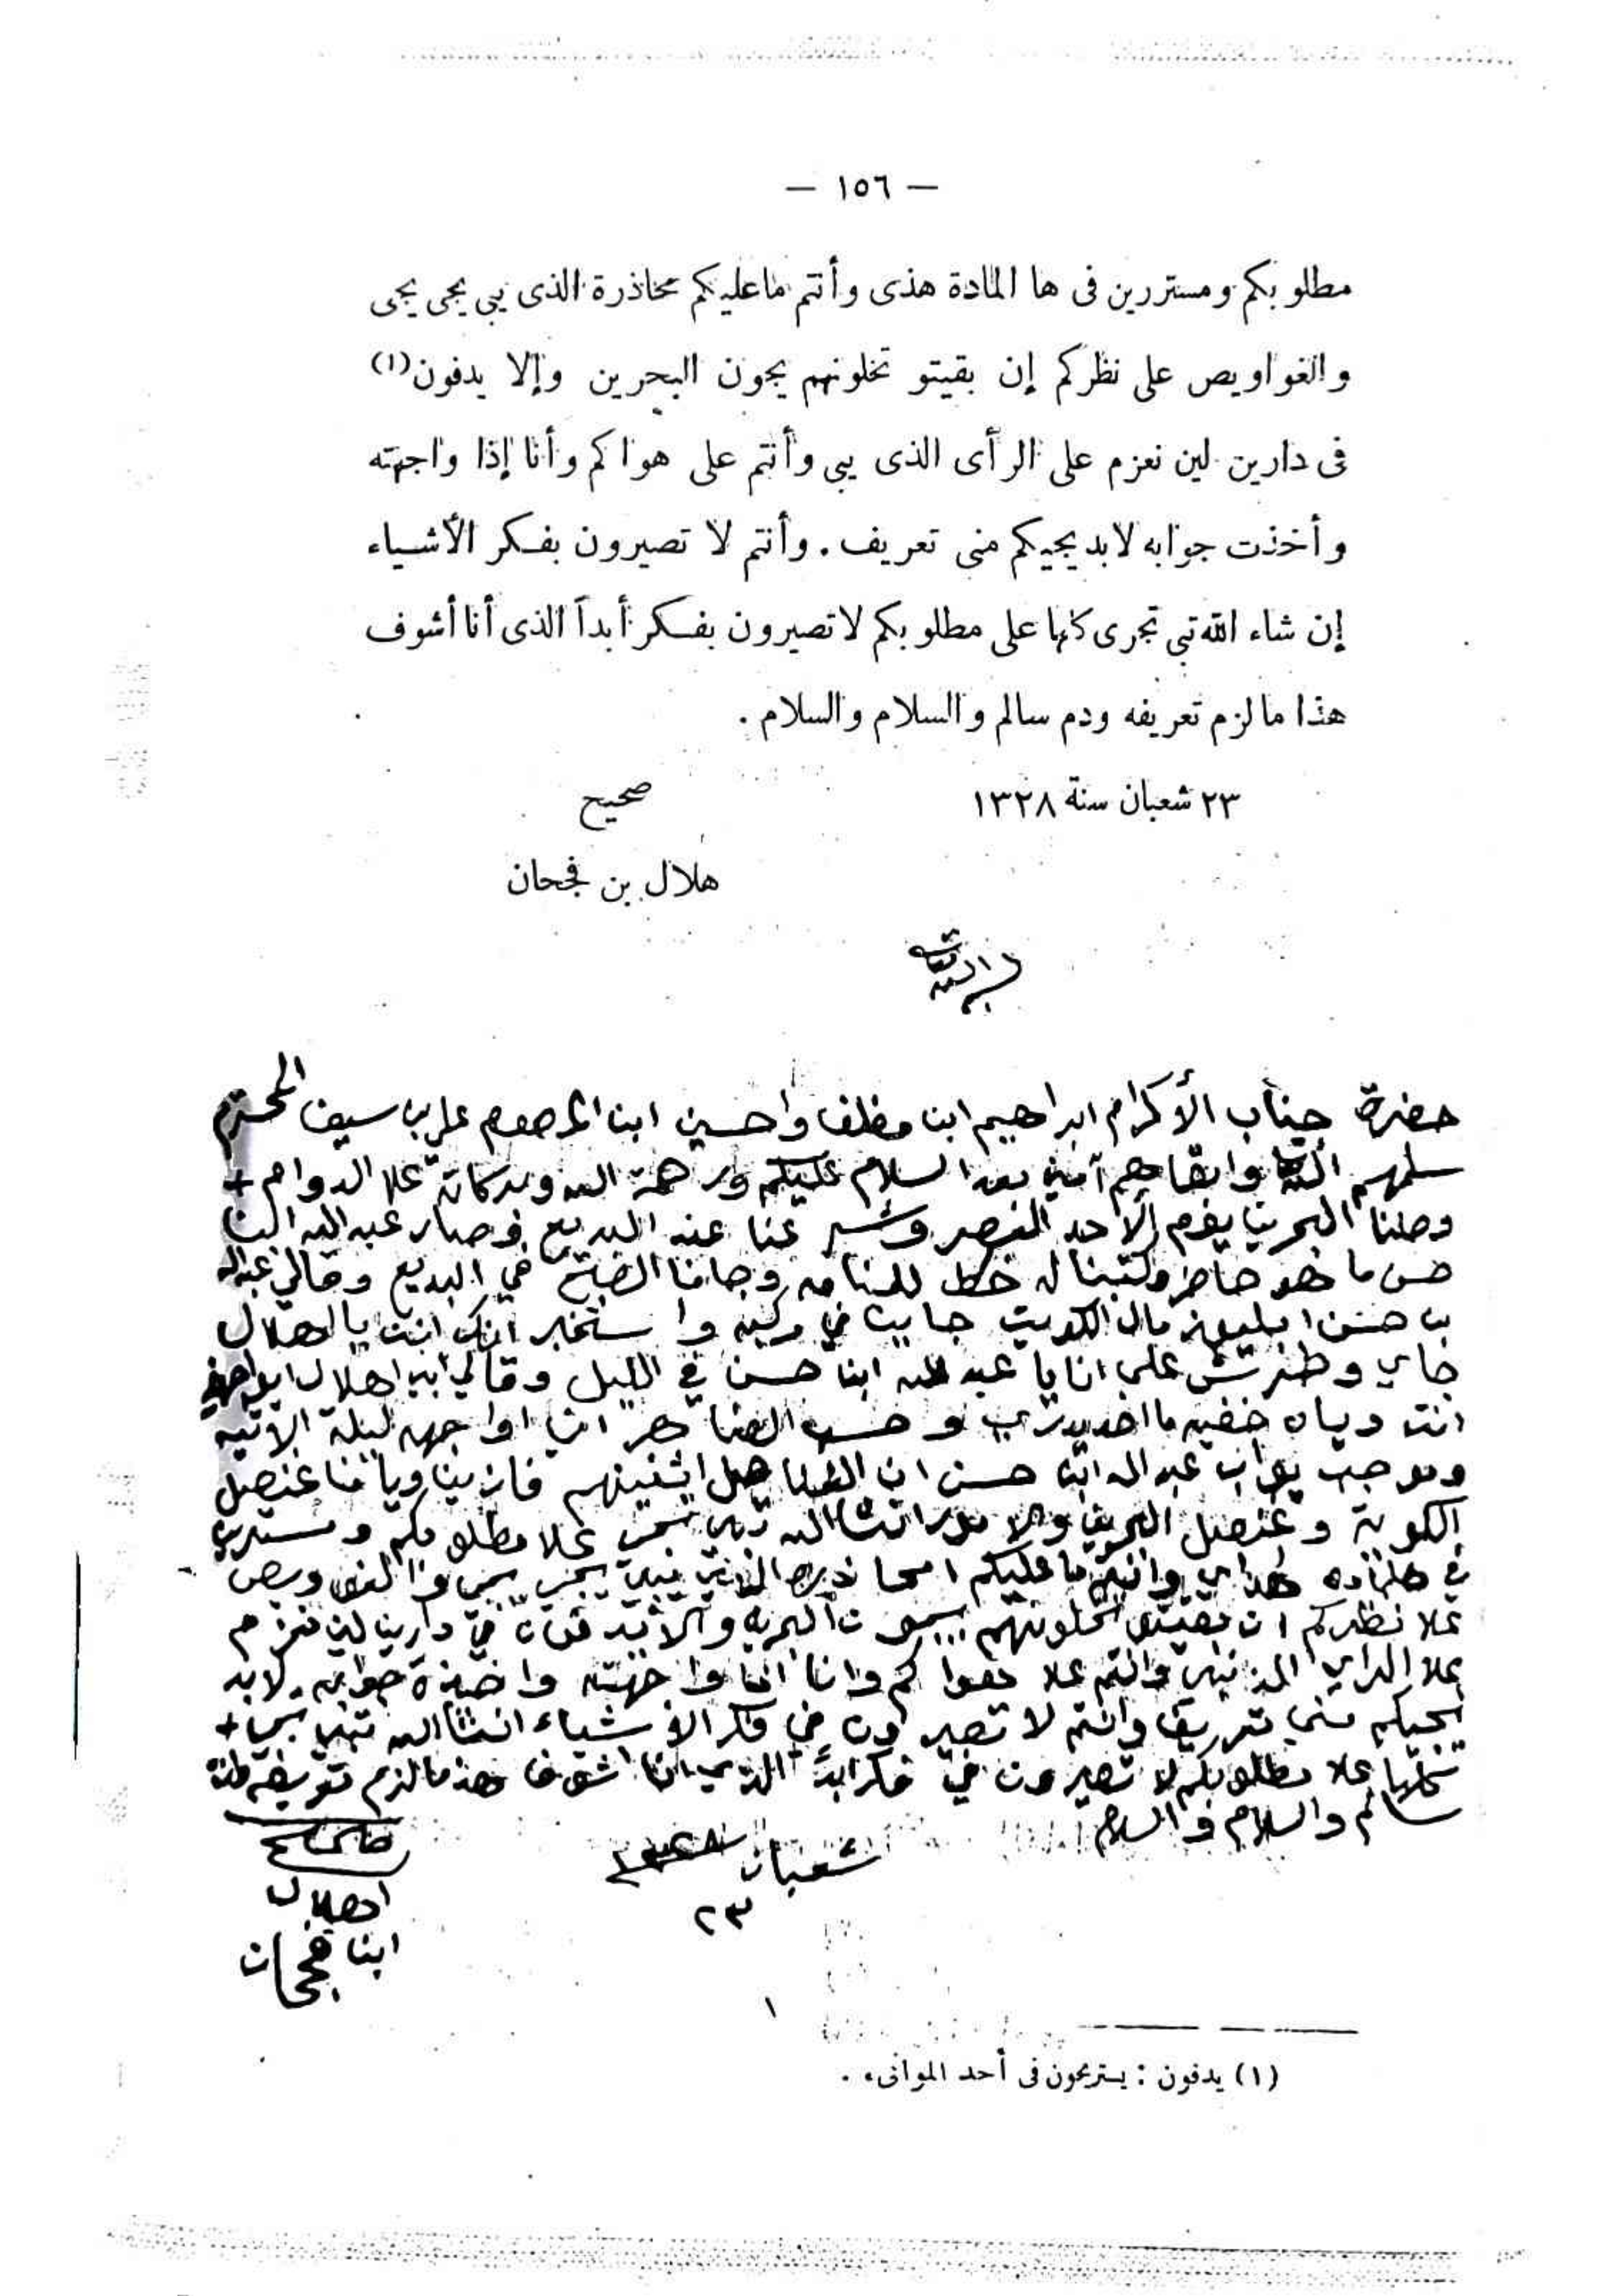 — ١٥٦ —
مطلوبكم ومستررين فى ها المادة هذى وأنتم ماعليكم محاذرة الذى يبى يجى يجى
والغواويص على نظركم إن بقيتو تخلونهم يجون البحرين وإلا يدفون(١)
فى دارين لين نعزم على الرأى الذى يبى وأنتم على هواكم وأنا إذا واجهته
وأخذت جوابه لابد يجيكم منى تعريف . وأنتم لا تصيرون بفكر الأشياء
إن شاء الله تبى تجرى كلها على مطلوبكم لاتصيرون بفكر أبداً الذى أنا أشوف
هذا مالزم تعريفه ودم سالم والسلام والسلام .
٢٣ شعبان سنة ١٣٢٨
صحيح
هلال بن فجحان
حضرة جناب الأكرام ابراهيم ابن مظلف واحسين ابن المرصوم علي بن سيف المحترم
سلمهم الله وابقاهم آمين بعد السلام عليكم ورحمة الله وبركاته علا الدوام +
وصلنا البحرين يوم الاحد العصر عنا عند البديع وصار عبد الله ابنا
حسن ما هو حاضر وكتبنا له خط للمنامه وجانا الصبح في البديع وقالي عبدالله
بن حسن مال الكويت جايين في مركب وا ستخبر انك انت يا اهلال
جاي وطرش علي انا يا عبد الله ابنا حسن في الليل وقالي
انت وياه خفيه ما احد يدري و انا اواجهه ليلة الاثنين
وموجب جواب عبد الله ابن حسن ان
الكويت و البحرين والامور انشاالله تبي تجري علا مطلوبكم ومستررين
في هلماده هذي وانتم ما عليكم امحاذره الذي يبي يجي يجي والغواويص
علا نظركم ان بقيتو تخلونهم يجون البحرين والا يدفون في دارين لين نعزم
علا الراي الذي يبي وانتم علا هواكم وانا اذا واجهته واخذة جوابه لابد
ايجيكم مني تعريف وانتم لا تصيرون في فكر الاشياء انشاالله تبي تجري +
كلها علا مطلوبكم لا تصيرون في فكر ابداً الذي انا اشوف هذ مالزم تعريفه
سالم والسلام والسلام
شعبان ١٣٢٨
٢٣
صحيح
اهلال
ابنا فجحان
١
(١) يدفون : يستريحون فى أحد الموانىء .